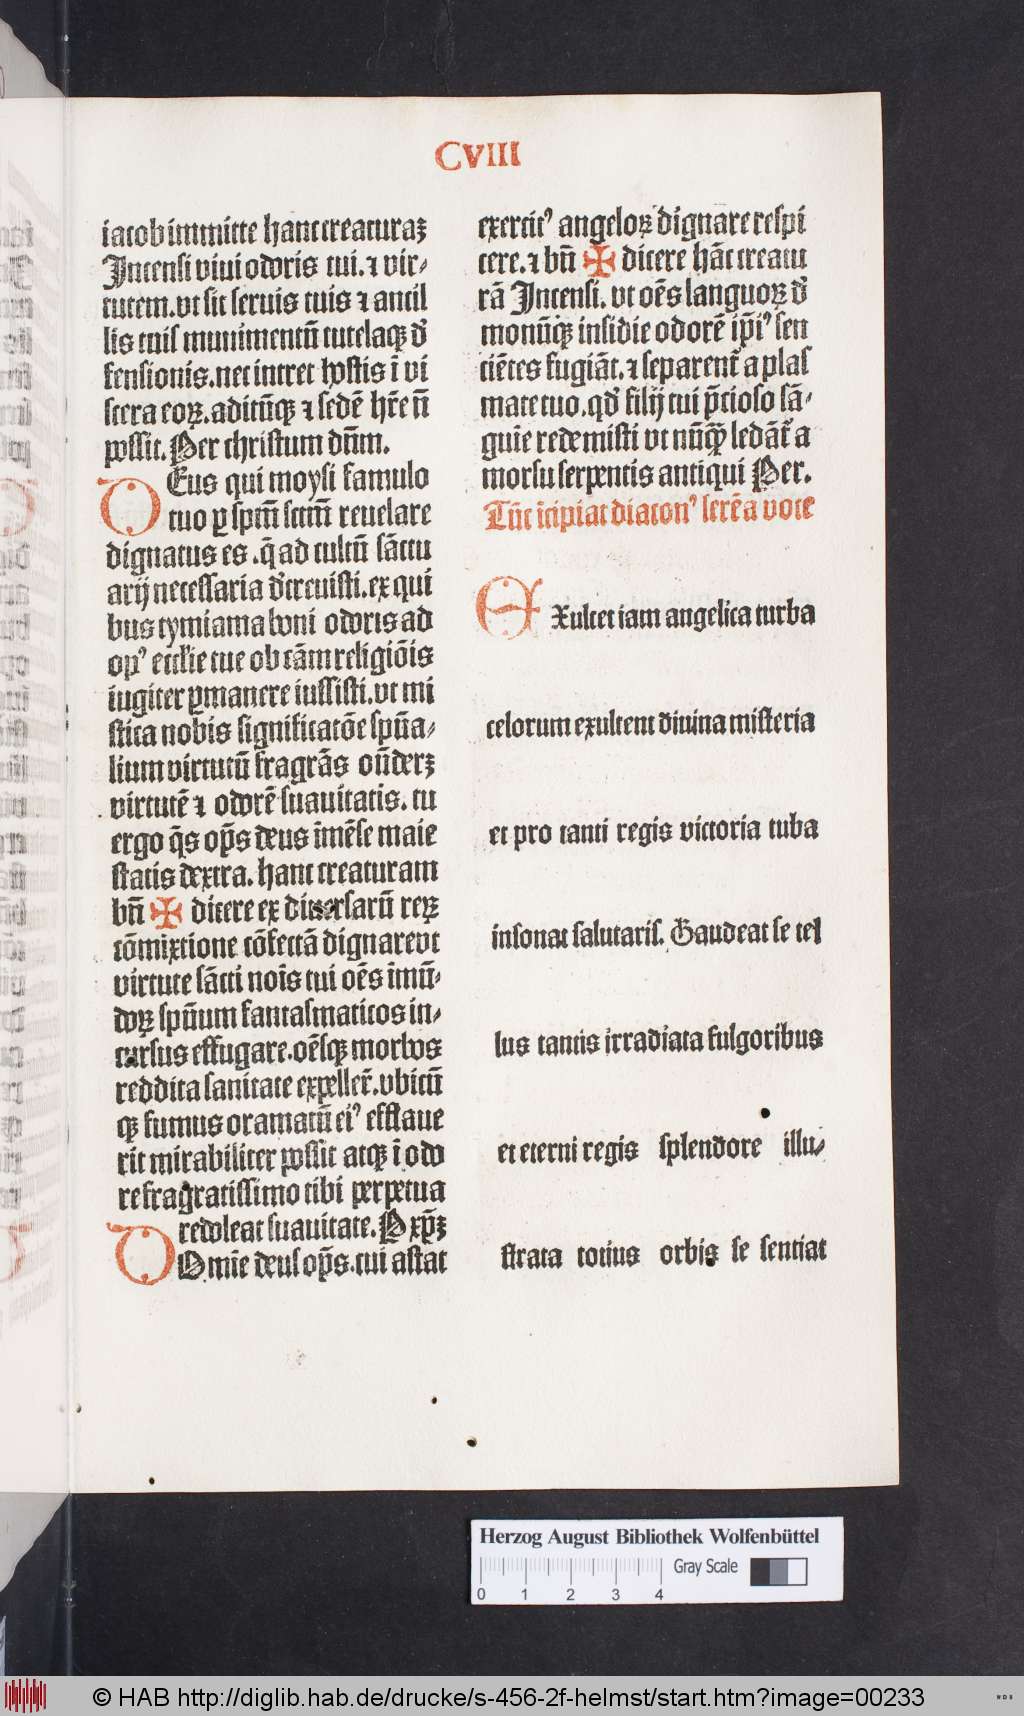 CVIII
iacob immitte hanc creaturaꝫ
Incensi viui odoris tui. ⁊ vir⸗
tutem. vt sit seruis tuis ⁊ ancil
lis tuis munimentū tutelaqꝫ d̄
fensionis. nec intret hostis ī vi
scera eoꝝ. aditūqꝫ ⁊ sedē hr̄e n̄
possit. Per christum dn̄m.
DEus qui moysi famulo
tuo ꝑ spm̄ sctm̄ reuelare
dignatus es. q̄ ad cultū sāctu
arij necessaria d̄creuisti. ex qui
bus tymiama boni odoris ad
opꝰ ecclie tue ob cām religiōis
iugiter ꝑmanere iussisti. vt mi
stica nobis significatōe spūa⸗
lium virtutū fragrās on̄deꝝ
virtutē ⁊ odorē suauitatis. tu
ergo q̄s op̄s deus īmēse maie
statis dextra. hanc creaturam
bn̄ ✠ dicere ex diuersarū reꝝ
cōmixtione cōfectā dignare vt
virtute sācti nois tui oēs īmū⸗
doꝝ spūum fantasmaticos in⸗
cursus effugare. oēsqꝫ morbos
reddita sanitate expeller̄. vbicū
qꝫ fumus aromatū eiꝰ efflaue
rit mirabiliter possit atqꝫ ī odo
re fragratissimo tibi perpetua
redoleat suauitate. P xp̄ꝫ
DOmīe deus op̄s. cui astat
exercitꝰ angeloꝝ dignare respi
cere. ⁊ bn̄ ✠ dicere hāc creatu
rā Incensi. vt oēs languoꝝ d̄
monūqꝫ insidie odorē ip̄iꝰ sen
ciētes fugiāt. ⁊ separent᷑ a plas
mate tuo. qd̄ filij tui p̄cioso sā⸗
guīe redemisti vt nūqꝫ ledāt᷑ a
morsu serpentis antiqui Per.
Tūc īcipiat diaconꝰ serēa voce
EXultet iam angelica turba
celorum exultent diuina misteria
et pro tanti regis victoria tuba
insonat salutaris. Gaudeat se tel
lus tantis irradiata fulgoribus
et eterni regis splendore illu⸗
strata totius orbis se sentiat
Herzog August Bibliothek Wolfenbüttel
0 1 2 3 4 Gray Scale
© HAB http://diglib.hab.de/drucke/s-456-2f-helmst/start.htm?image=00233